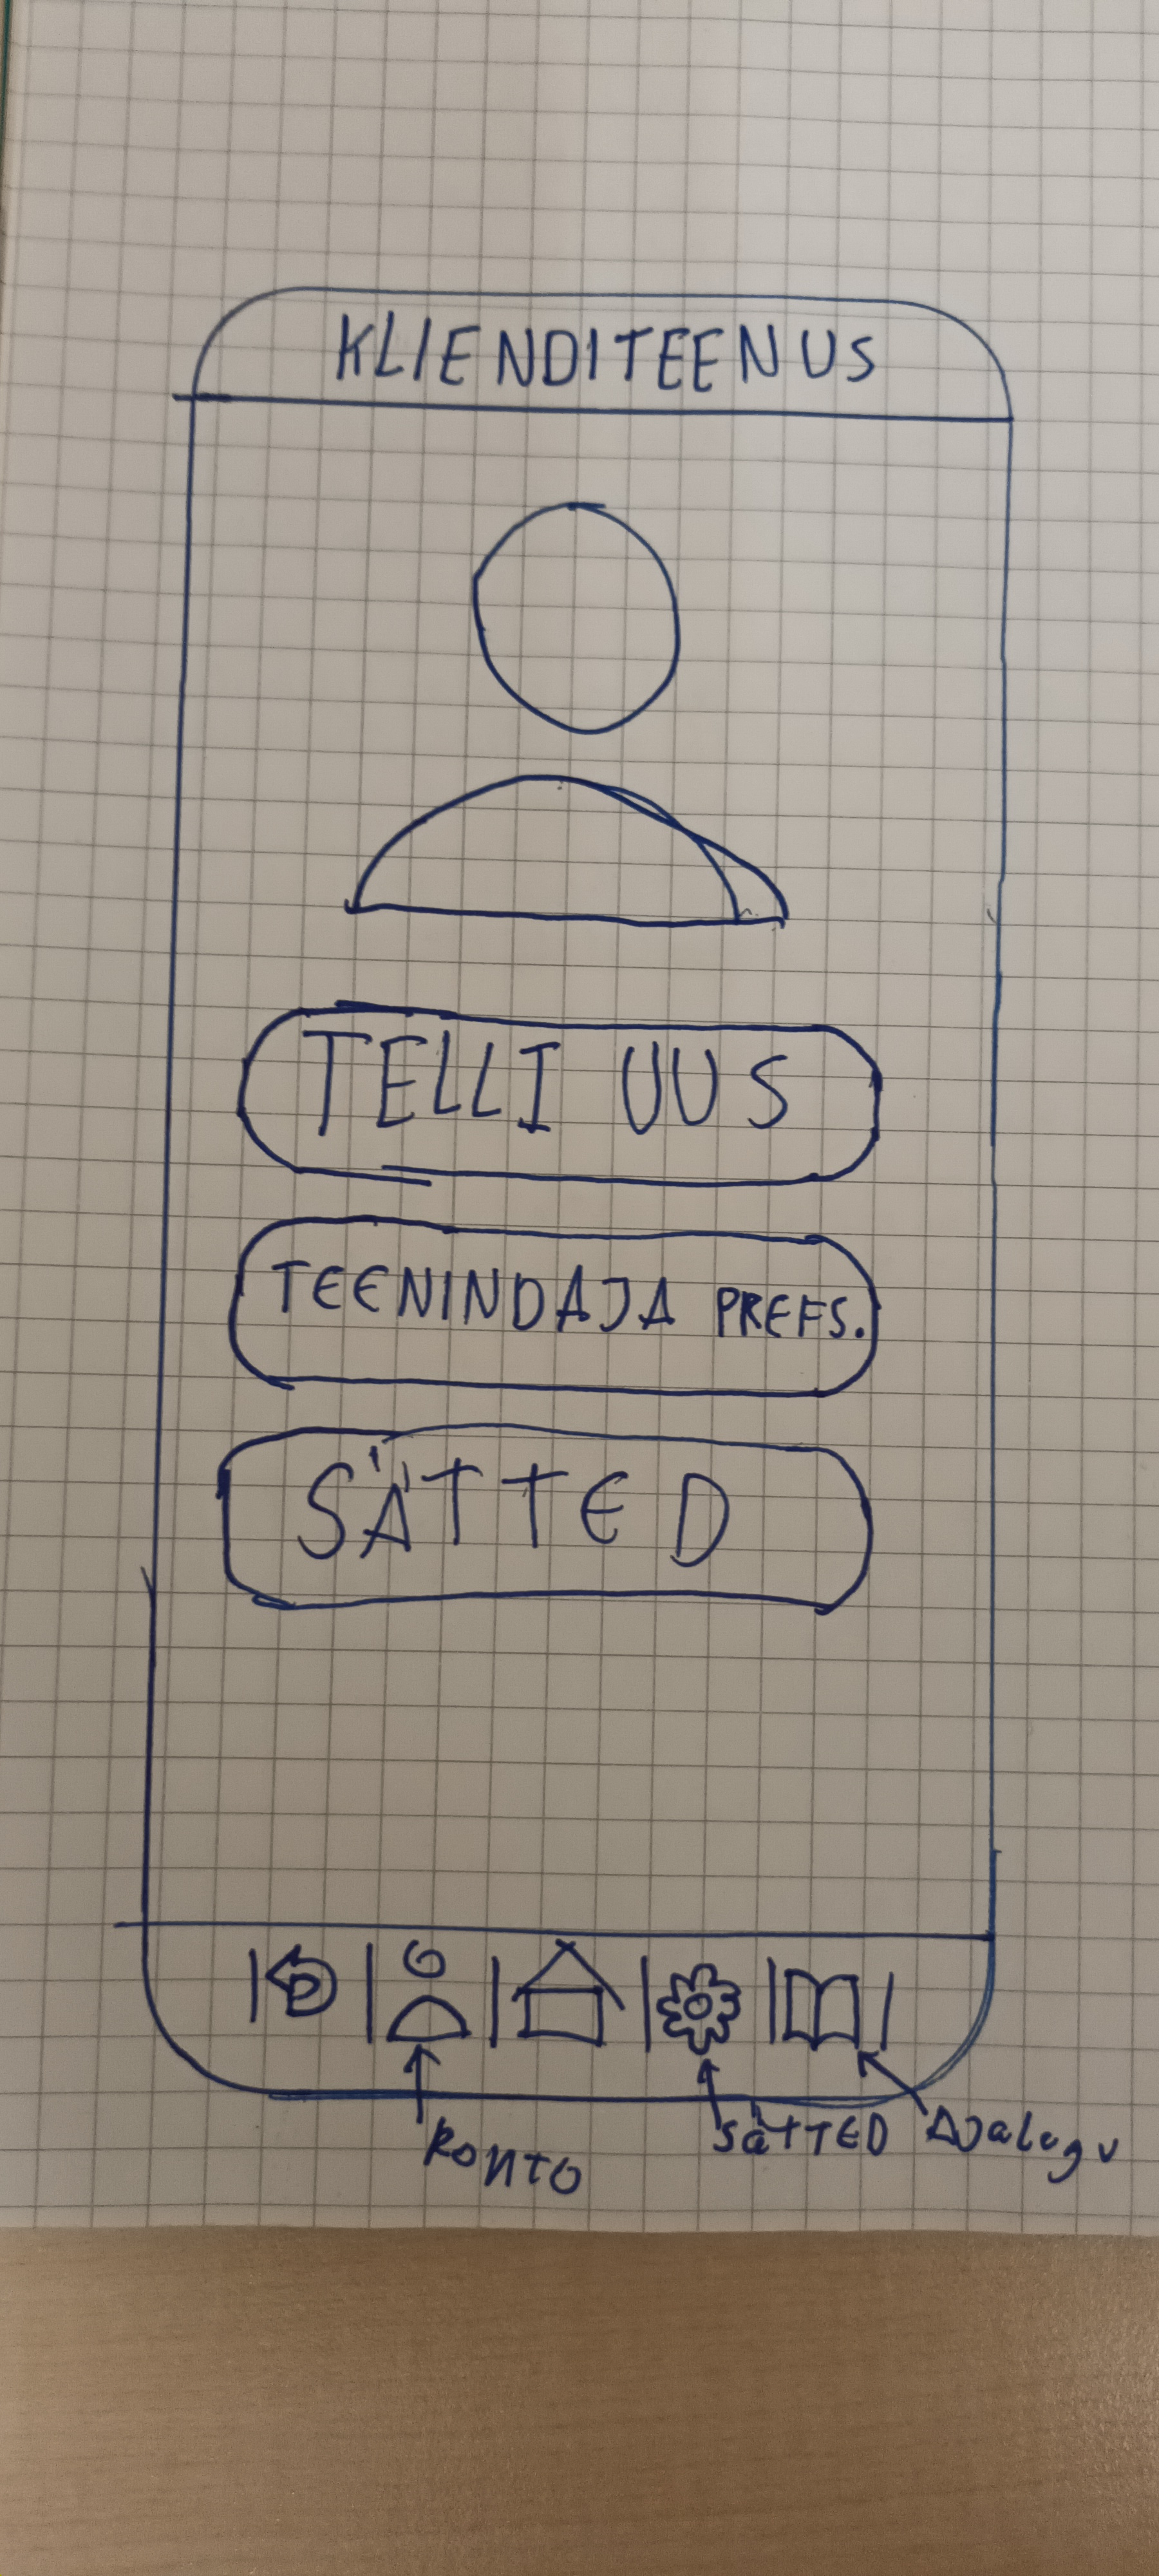 KLIENDITEENUS
TELLI UUS
TEENINDAJA PREFS.
SÄTTED
KONTO
SÄTTED
AJalugu